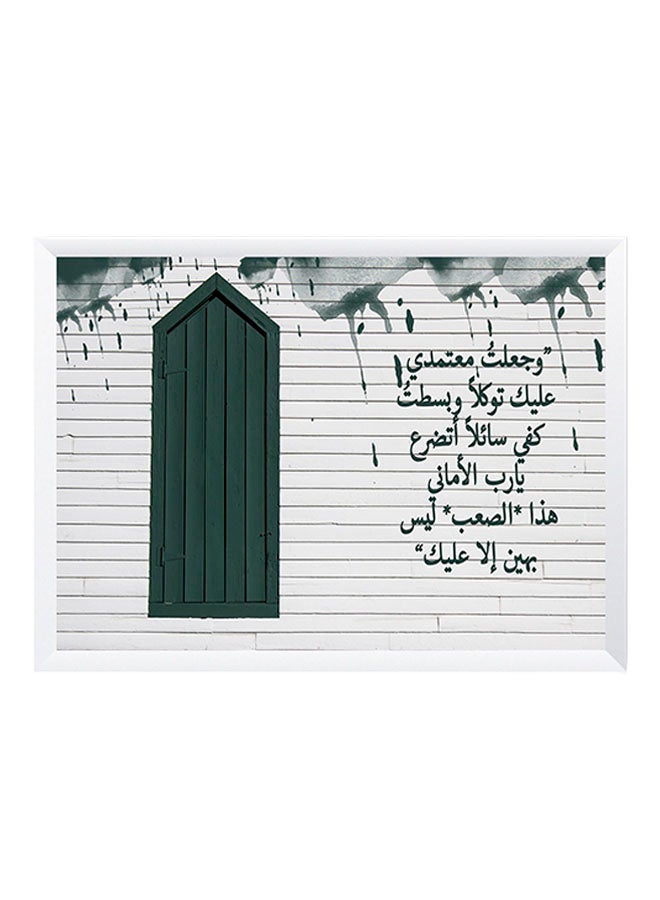 ”وجعلتُ معتمدي
عليك توكلاً وبسطتُ
كفي سائلاً أتضرع
يارب الأماني
هذا *الصعب* ليس
بهين إلا عليك“